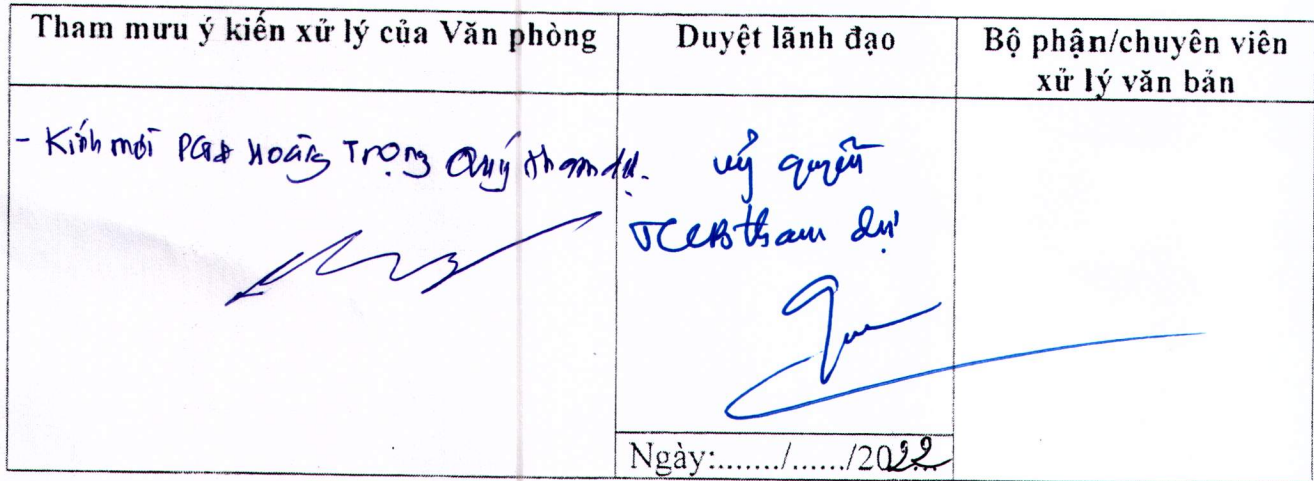 Tham mưu ý kiến xử lý của Văn phòng
Duyệt lãnh đạo
Bộ phận/chuyên viên
xử lý văn bản
- Kính mời PGĐ Hoàng Trọng Quý tham dự.
uỷ quyền
TCCB tham dự
Ngày:......./....../2022